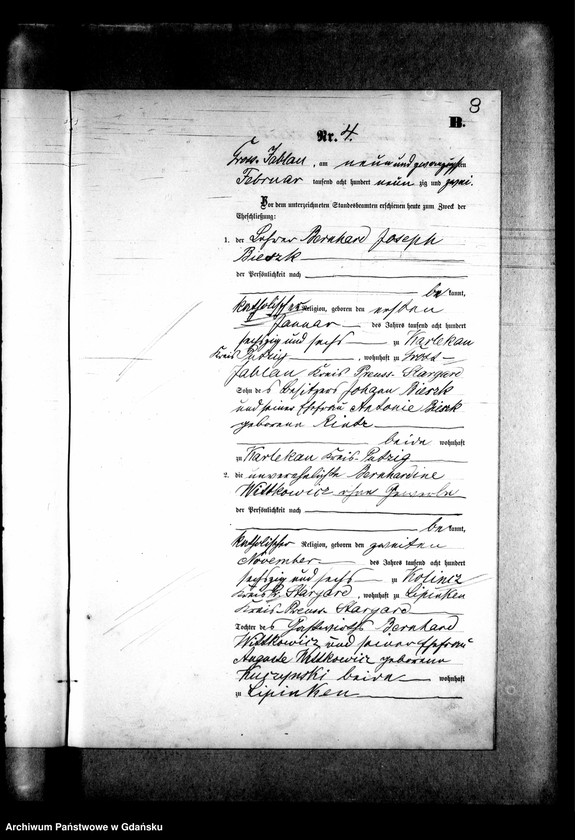 8
B.
Nr. 4.
Gross Jablau, am neun und zwanzigsten
Februar tausend acht hundert neun zig und zwei.
Vor dem unterzeichneten Standesbeamten erschienen heute zum Zweck der
Eheschließung:
1. der Lehrer Bernhard Joseph
Bieszk
der Persönlichkeit nach
be kannt,
katholischer Religion, geboren den ersten
Januar des Jahres tausend acht hundert
sechszig und sechs zu Karlekau
Kreis Putzig, wohnhaft zu Gross-
Jablau Kreis Preuss. Stargard
Sohn des Besitzers Johann Bieszk
und seiner Ehefrau Antonie Bieszk
geborene
beide wohnhaft
zu Karlekau Kreis Putzig
2. die unverehelichte Bernhardine
Wittkowicz ohne Gewerbe
der Persönlichkeit nach
be kannt,
katholischer Religion, geboren den zweiten
November des Jahres tausend acht hundert
sechszig und sechs zu
Kreis Pr. Stargard, wohnhaft zu Lipinken
Kreis Preuss. Stargard
Tochter des Gastwirths Bernhard
Wittkowicz und seiner Ehefrau
Auguste Wittkowicz geborene
beide wohnhaft
zu Lipinken
Archiwum Państwowe w Gdańsku